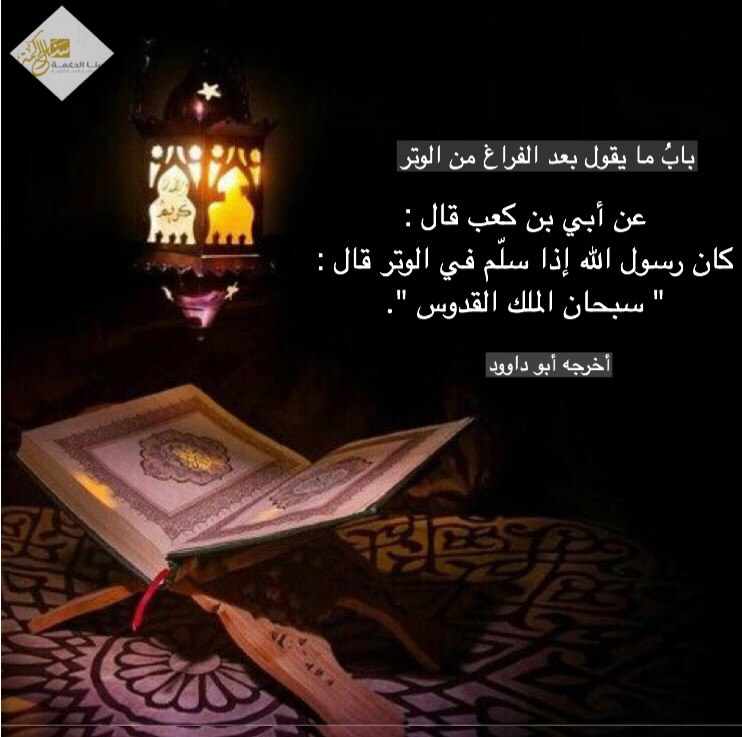 بابُ ما يقول بعد الفراغ من الوتر
عن أبي بن كعب قال :
كان رسول الله إذا سلّم في الوتر قال :
" سبحان الملك القدوس ".
أخرجه أبو داوود
كريم